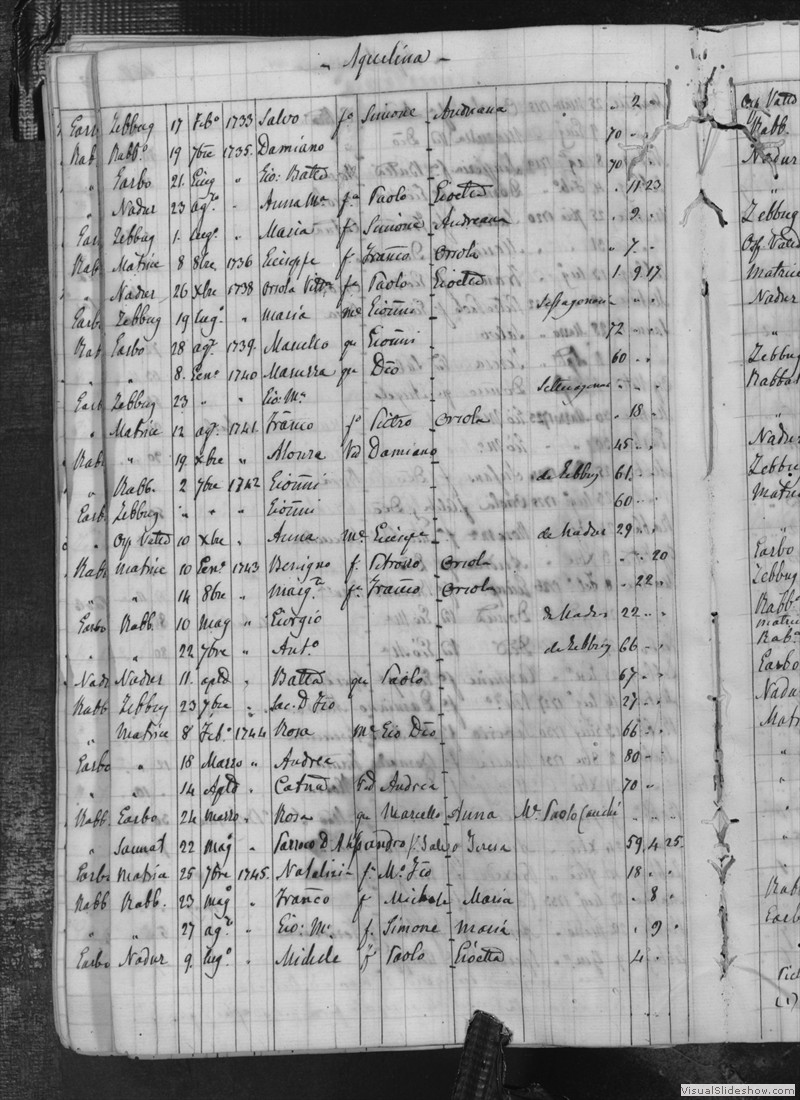 - Aquilina -
Earb Zebbug 17 Feb.º 1733 Salvo fº Simone Andreana . 2 .
Rab Rabb.º 19 7bre 1735. Damiano 70 .
" Garbo 21. Giug " Gio: Batta 70
" Nadur 23 ag.º . Anna Mª fª Paolo Gioetta . 11 23
Zebbug 1. lug.º " Maria fª Simone Andreana . 9 .
Rab Matrice 8 8bre 1736 Giuseppe f. Franco Oriola " 7 .
" Nadur 26 Xbre 1738 Oriola Vitt.ª fª Paolo Gioetta 1. 9 17
Garbo Zebbug 19 lug.º " Maria mº Gionni Sessagenaria " " .
Rab Garbo 28 ag.º 1739. Marcello qu Gionni 72 .
" " 8. Gen.º 1740 qu Dto 60 . .
Garb Zebbug 23 " " Gio: Mª
" Matrice 12 ag.º 1741. Franco fº Pietro Oriola . 18 .
Rab " 19 Xbre " Alonza Vd Damiano 45 . .
" Rabb. 2 7bre 1742 Gionni de Zebbug 61. .
Garb. Zebbug " " " Gionni 60 . .
" Osp Valtta 10 Xbre . Anna mº Giuseppe de Nadur 29 . .
Rabb Matrice 10 Gen.º 1743 Benigno f. Petronio Oriola . . 20
" " 14 8bre " fª Franco Oriola . 22 .
Garbo Rabb. 10 Mag " Giorgio de Nadur 22 . .
" " 22 7bre " Ant.º de Zebbug 66 . .
Nadr Nadur 11. aple . Batta qu Paolo 67 . .
Rabb Zebbug 23 7bre " Sac. D. Fco 27 . .
" Matrice 8 Feb.º 1744 Rosa mº Gio Dco 66 . .
Garbo " 18 Marzo " Andrea 80 .
" " 14 Aple . Catna Vd Andrea 70 .
Rabb. Garbo 24 marzo . Rosa qu Marcello Anna Mº Paolo Cauchi . . .
" Sannat 22 mag.º " Parroco D. Alessandro f. Salvo Teresa 59 4 25
Garbo Matrice 25 7bre 1745. f. Mº Fco 18 . .
Rabb Rabb. 23 mag.º . Franco f Michele Maria . 8 .
" " 27 ag.º " Gio: Mª f. Simone Maria . 9 .
Garbo Nadur 9. lug.º " Michele f Paolo Gioetta 4 .
Osp Valtta
Rabb.
Nadur
"
Zebbug
Osp Valtta
Matrice
Nadur
"
Zebbug
Rabbat
"
Nadur
Zebbug
Matrice
"
Garbo
Zebbug
Rabb.º
Matrice
Rab.º
Garbo
Nadur
Matr
"
Rabb
Garbo
(1)
VisualSlideshow.com